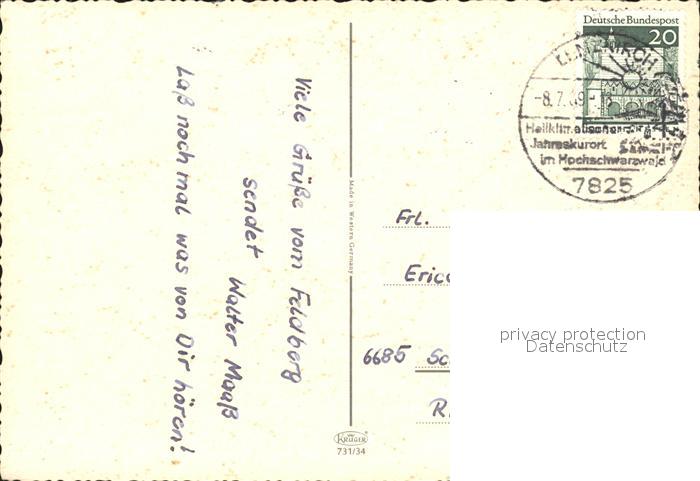 Viele Grüße vom Feldberg
sendet Walter Maaß
Laß noch mal was von Dir hören!
Made in Western Germany
KRÜGER
731/34
Deutsche Bundespost
20
LENZKIRCH
-8.7.69-
Heilklimatischer
Jahreskurort
im Hochschwarzwald
7825
Frl.
Eric
6685 Sc
R
privacy protection
Datenschutz